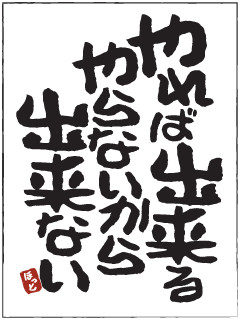 やれば出来る
やらないから
出来ない
ほっと